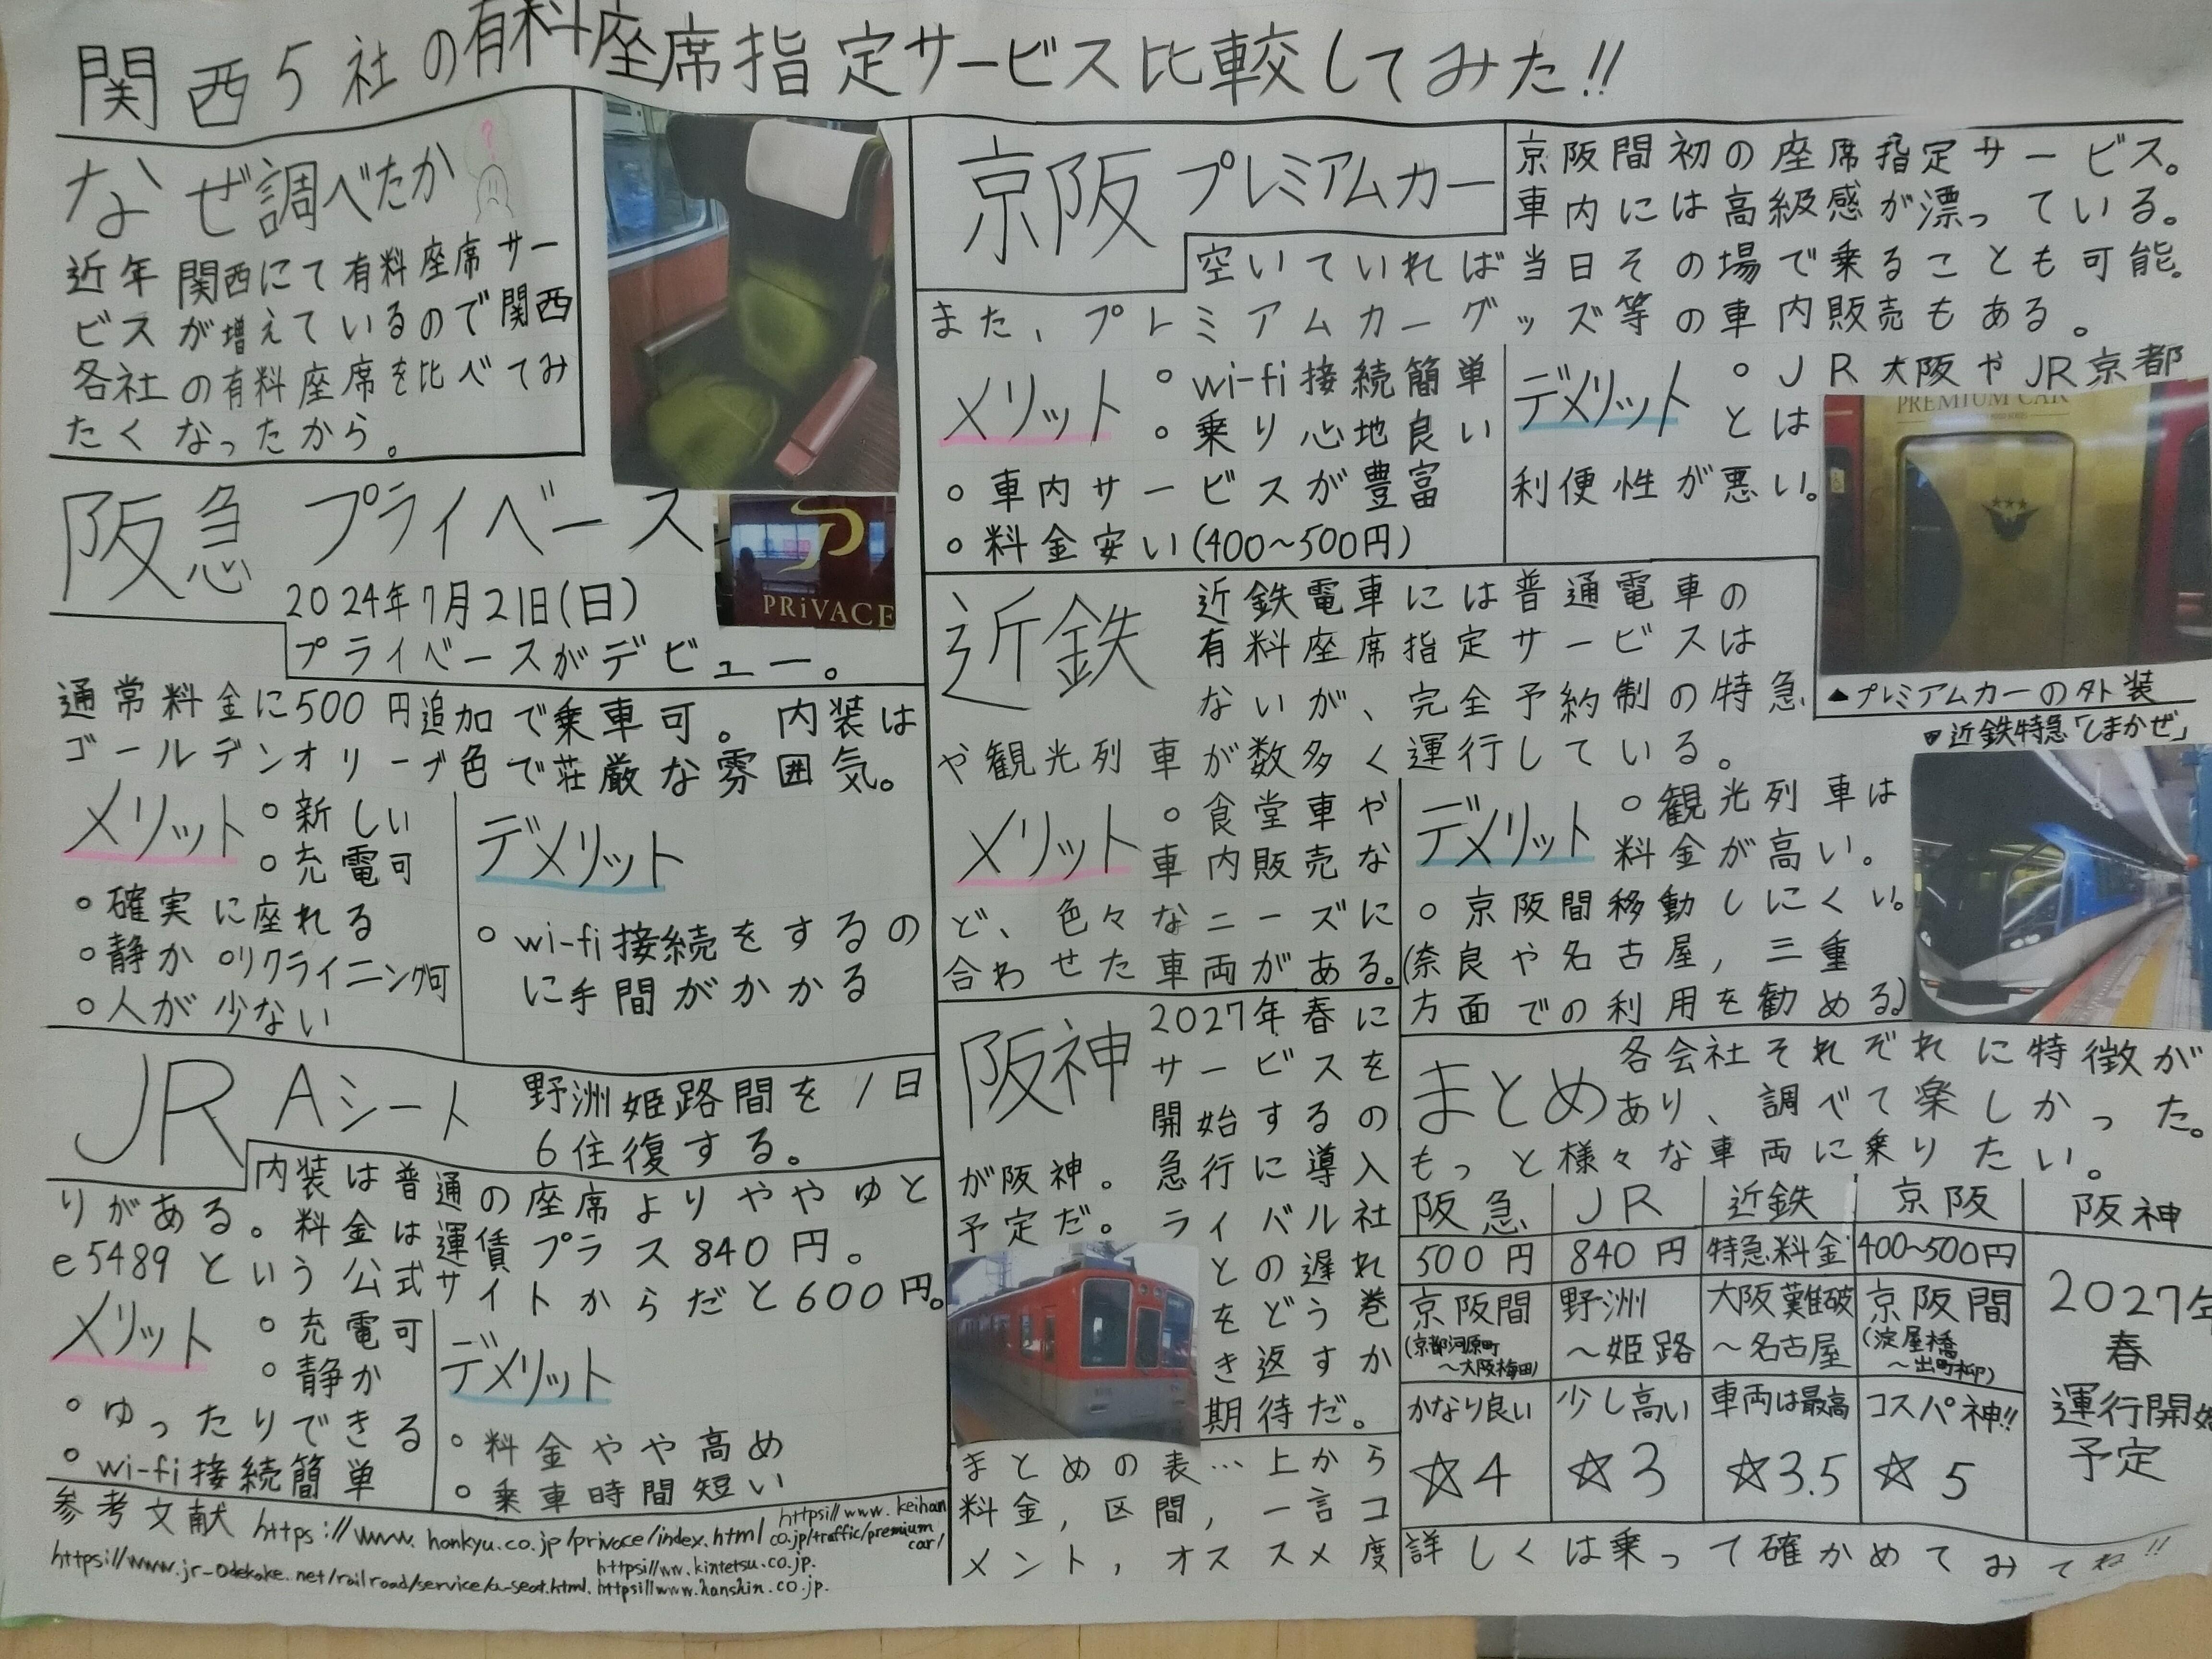 関西5社の有料座席指定サービス比較してみた!!
なぜ調べたか
?
近年関西にて有料座席サー
ビスが増えているので関西
各社の有料座席を比べてみ
たくなったから。
阪急 プライベース
PRiVACE
2024年7月21日(日)
プライベースがデビュー。
通常料金に500円追加で乗車可。内装は
ゴールデンオリーブ色で荘厳な雰囲気。
メリット
○新しい
○充電可
○確実に座れる
○静か ○リクライニング可
○人が少ない
デメリット
○wi-fi接続をするの
に手間がかかる
JR Aシート
野洲姫路間を1日
6往復する。
内装は普通の座席よりややゆと
りがある。料金は運賃プラス840円。
e5489という公式サイトからだと600円。
メリット
○充電可
○静か
○ゆったりできる
○wi-fi接続簡単
デメリット
○料金やや高め
○乗車時間短い
参考文献 https://www.hankyu.co.jp/privace/index.html
https://www.keihan
co.jp/traffic/premium
car/
https://www.jr-odekake.net/railroad/service/a-seat.html.
https://ww.kintetsu.co.jp.
https://www.hanshin.co.jp.
京阪 プレミアムカー
京阪間初の座席指定サービス。
車内には高級感が漂っている。
空いていれば当日その場で乗ることも可能。
また、プレミアムカーグッズ等の車内販売もある。
メリット
○wi-fi接続簡単
○乗り心地良い
○車内サービスが豊富
○料金安い(400~500円)
デメリット
○JR大阪やJR京都
とは
利便性が悪い。
PREMIUM CAR
▲プレミアムカーの外装
近鉄
近鉄電車には普通電車の
有料座席指定サービスは
ないが、完全予約制の特急
や観光列車が数多く運行している。
▼近鉄特急「しまかぜ」
メリット
○食堂車や
車内販売な
ど、色々なニーズに
合わせた車両がある。
デメリット
○観光列車は
料金が高い。
○京阪間移動しにくい。
(奈良や名古屋,三重
方面での利用を勧める)
阪神
2027年春に
サービスを
開始するの
が阪神。急行に導入
予定だ。ライバル社
との遅れ
をどう巻
き返すか
期待だ。
まとめの表…上から
料金,区間,一言コ
メント,オススメ度
まとめ
各会社それぞれに特徴が
あり、調べて楽しかった。
もっと様々な車両に乗りたい。
阪急 JR 近鉄 京阪 阪神
500円 840円 特急料金 400~500円
京阪間 野洲 大阪難破 京阪間
(京都河原町 ~姫路 ~名古屋 (淀屋橋
~大阪梅田) ~出町柳)
かなり良い 少し高い 車両は最高 コスパ神!!
☆4 ☆3 ☆3.5 ☆5
2027年
春
運行開始
予定
詳しくは乗って確かめてみてね!!